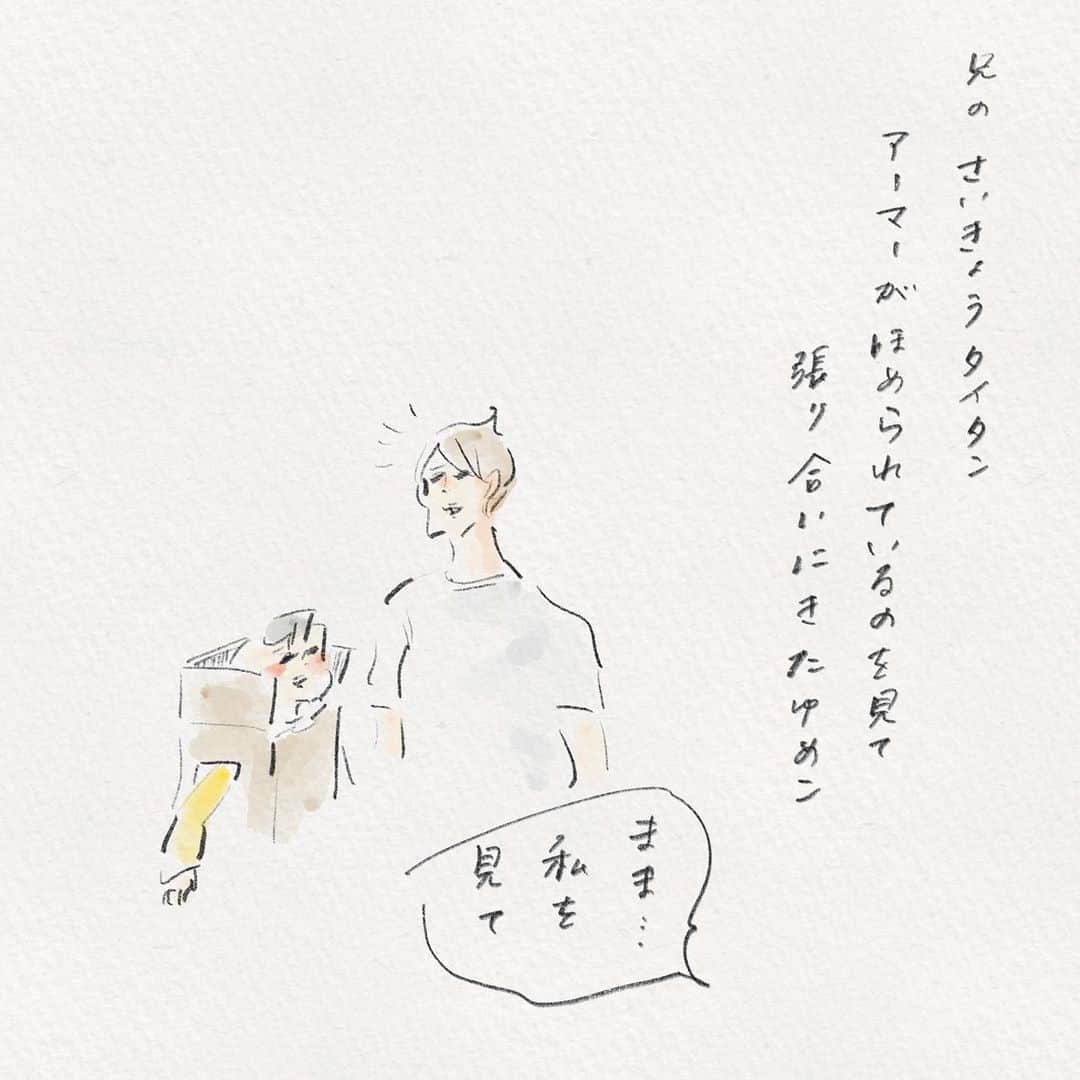 兄の さいきょうタイタン
アーマーがほめられているのを見て
張り合いにきたゆめこ
まま…
私を
見て